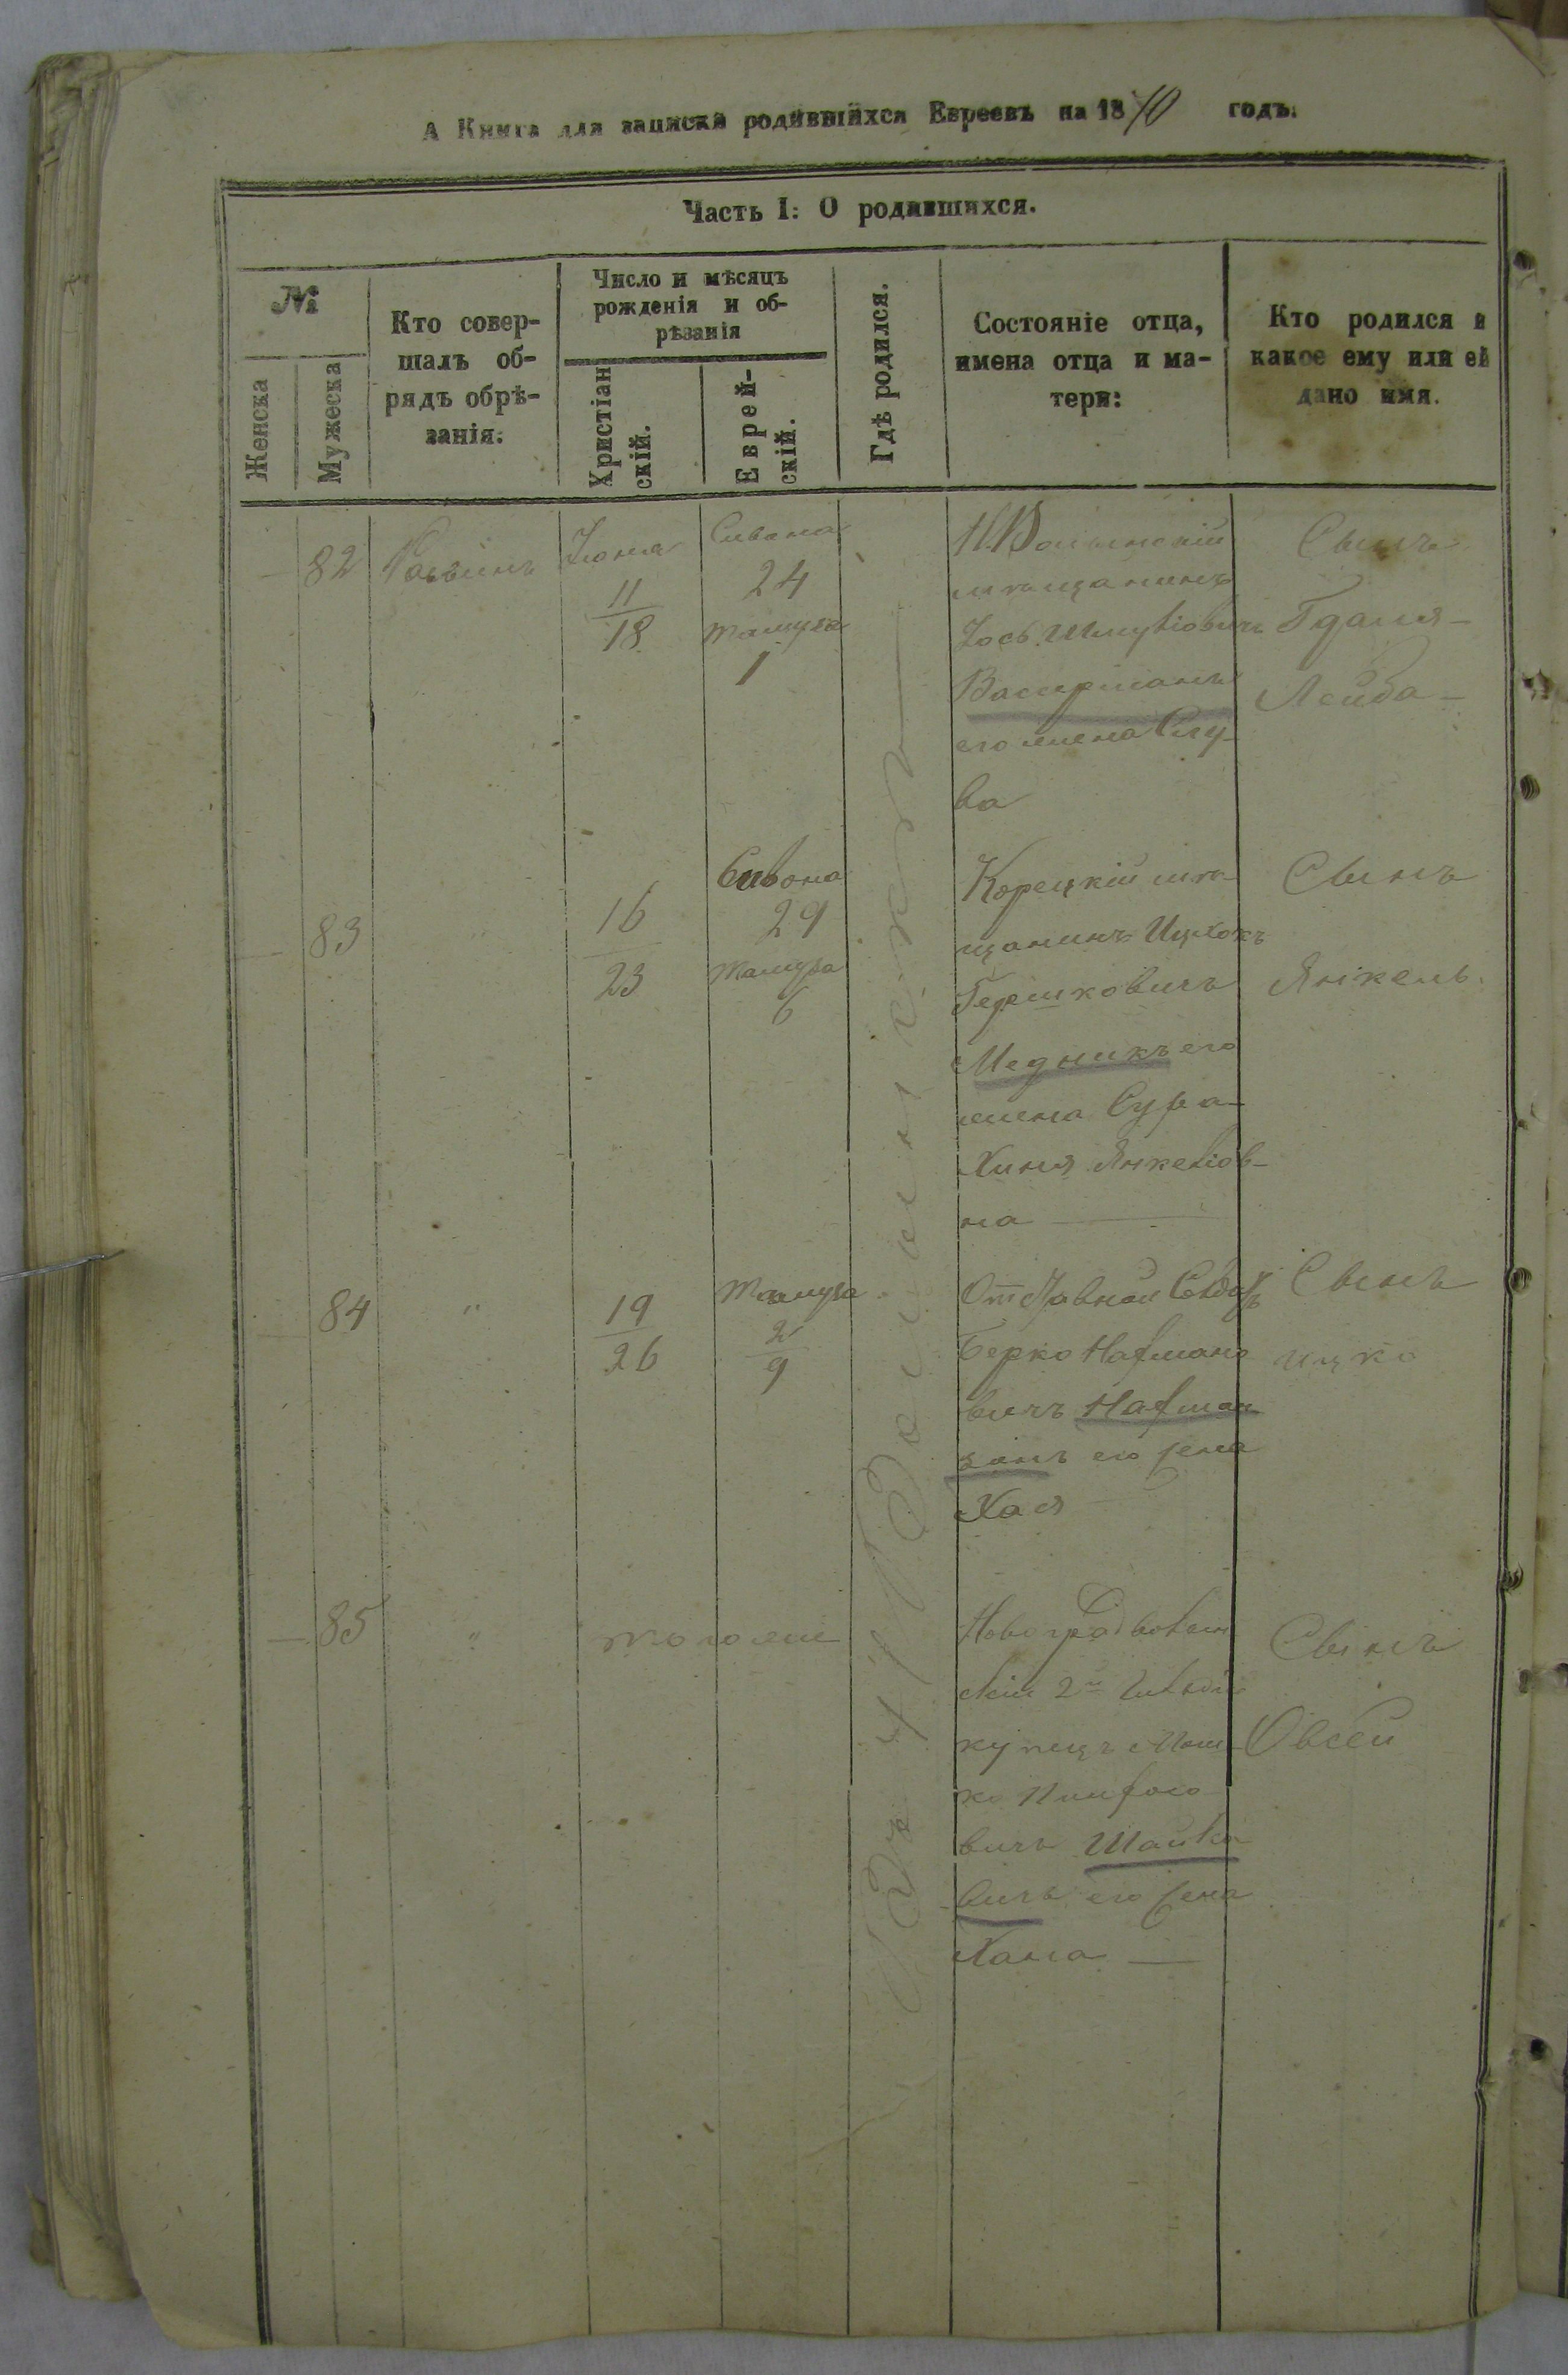 А Книга для записки родившихся Евреевъ на 1870 годъ.
Часть I: О родившихся.
№
Женска
Мужеска
Кто совер-
шалъ об-
рядъ обрѣ-
занія:
Число и мѣсяцъ
рожденія и об-
рѣзанія
Христіан
скій.
Еврей-
скій.
Гдѣ родился.
Состояніе отца,
имена отца и ма-
тери:
Кто родился и
какое ему или ей
дано имя.
— 82
Раввинъ
Іюня
11
18
Сивана
24
Тамуза
1
Н.Волынскій
мѣщанинъ
Іось Шмулiовичъ
Васерманъ
его жена Слу-
ва
Сынъ
Гдаля —
Лейба —
— 83
16
23
Сивона
29
Тамуза
6
Корецкій мѣ
щанинъ Ицхокъ
Гершковичъ
Медникъ его
жена Сура-
Хиня Янкеліов-
на —
Сынъ
Янкель.
— 84
"
19
26
Тамуза
2
9
Берко Нахмано
вичъ Нахман
зонъ его жена
Хая
Сынъ
Ицко
— 85
"
того же
Новоградволын
скій 2й гильдіи
купецъ Мош
ко
вичъ
вичъ его жена
Хана —
Сынъ
Овсей